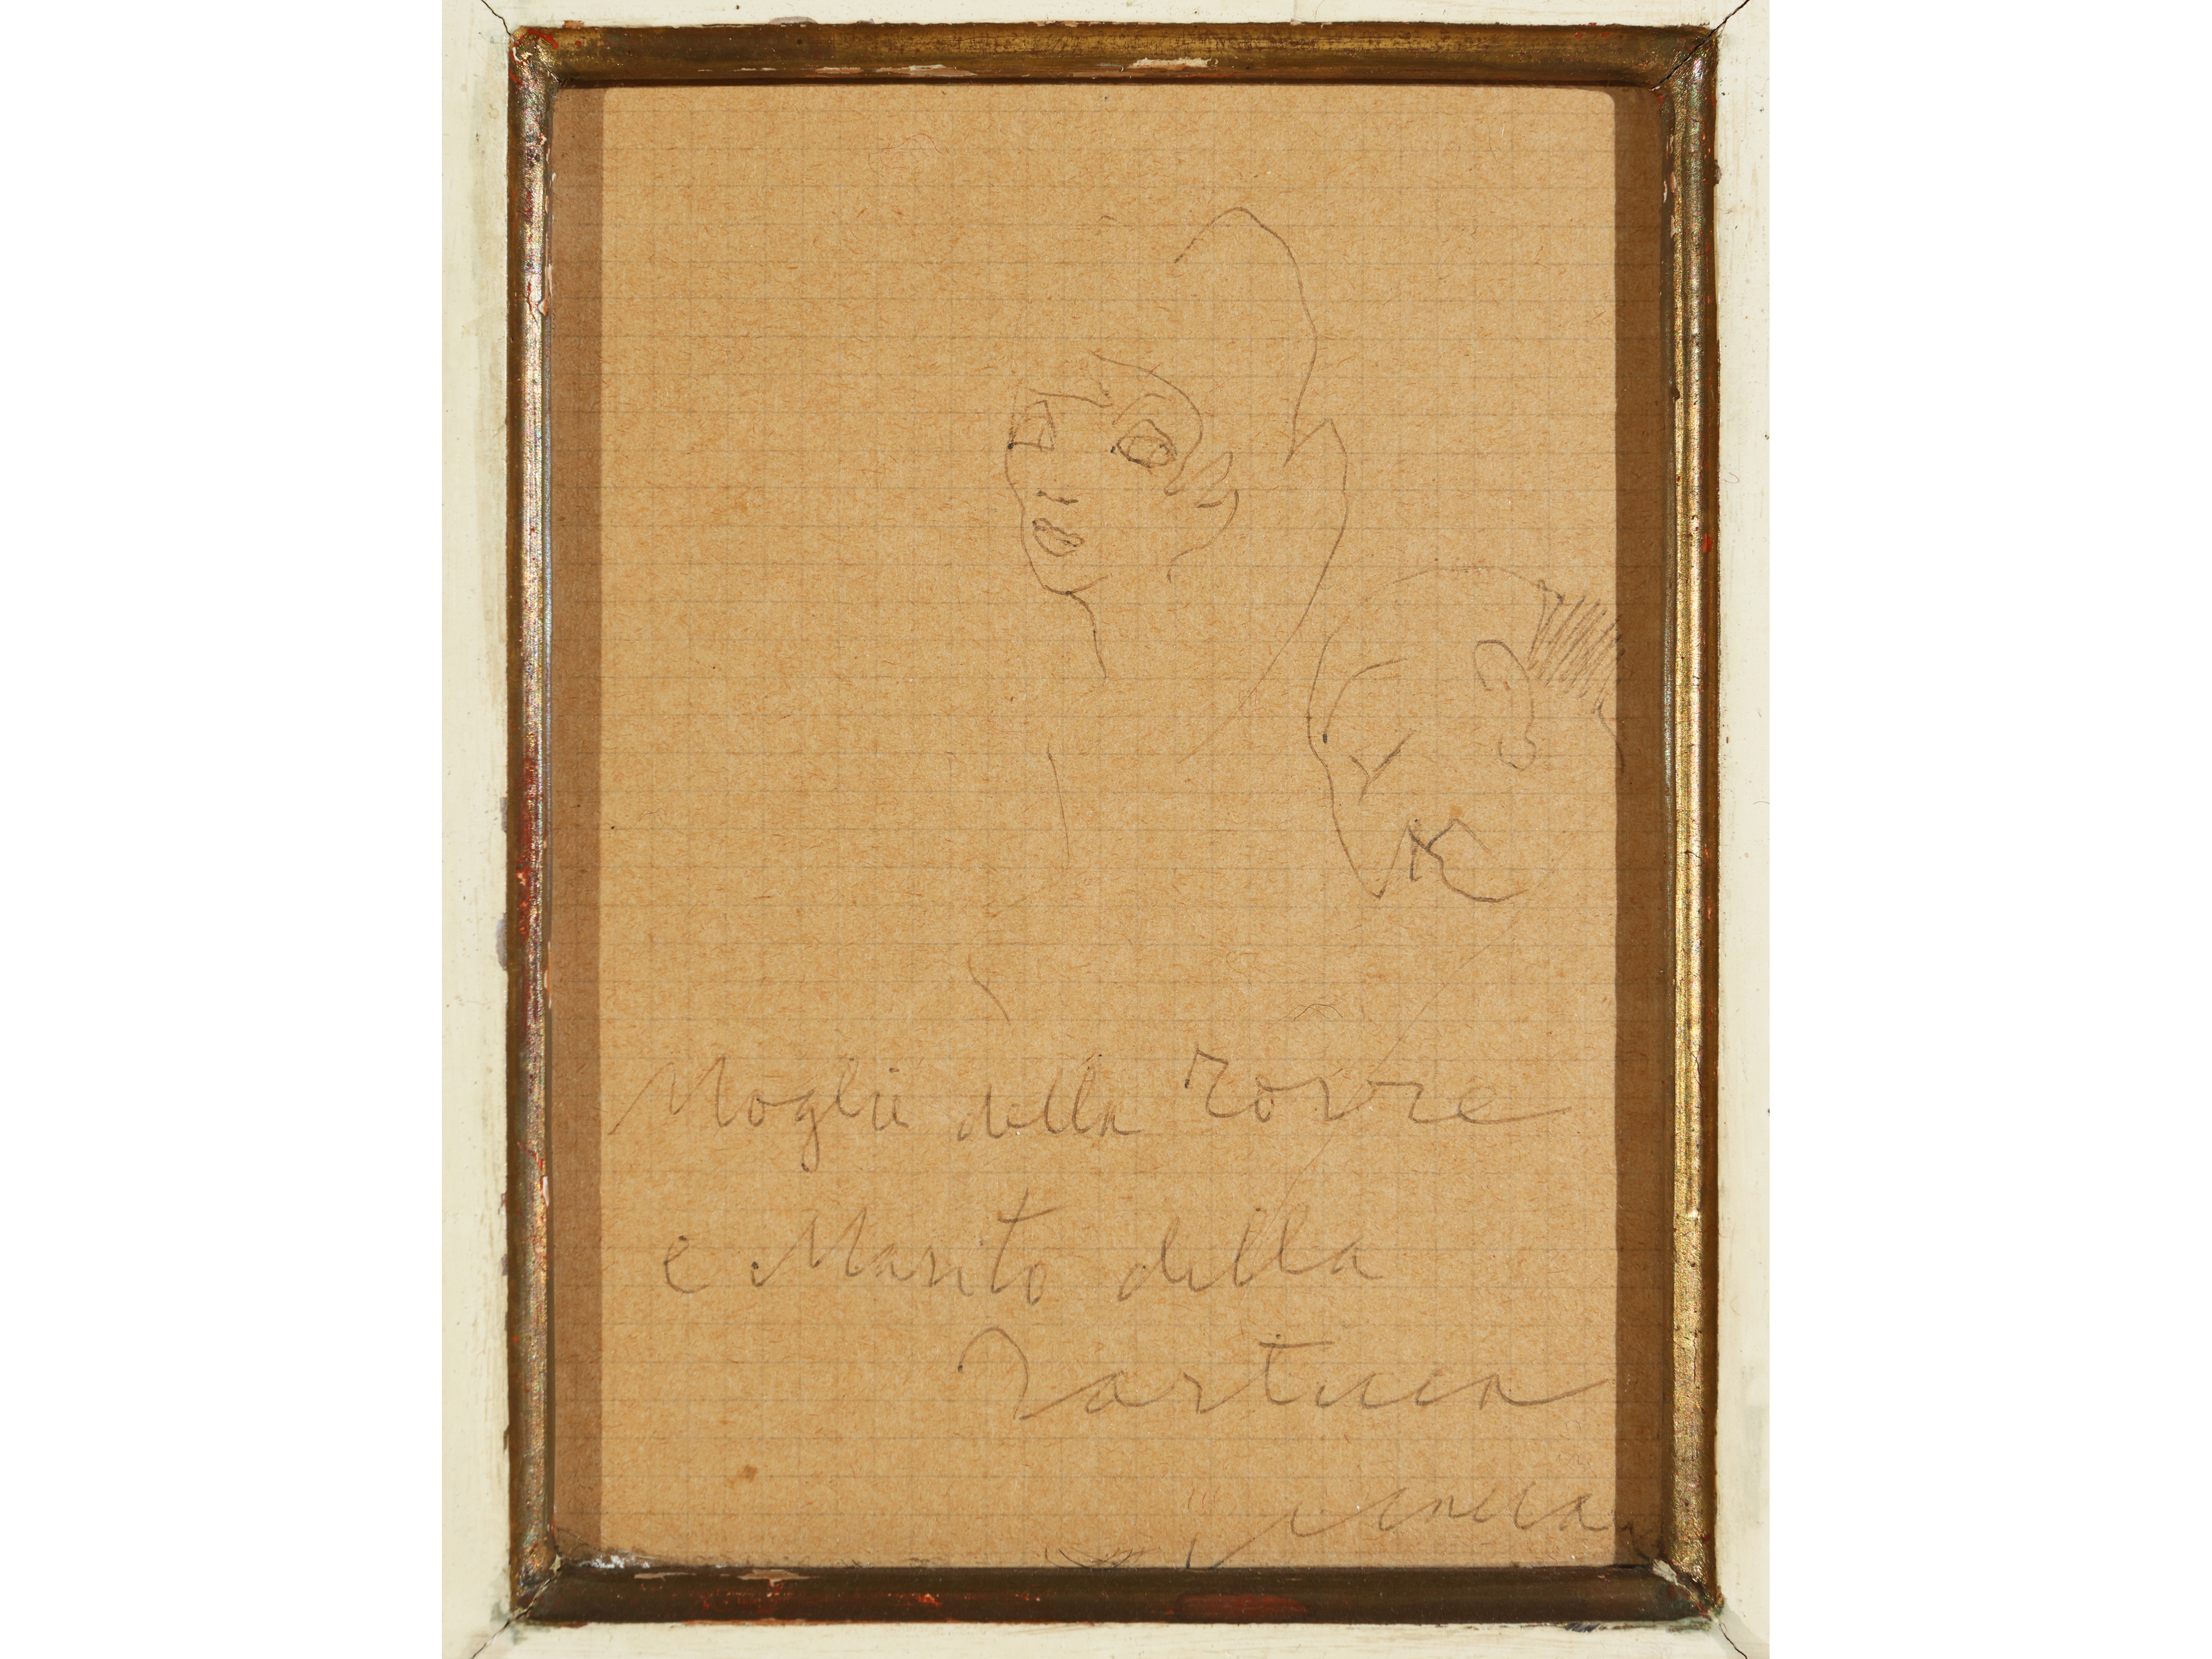 Moglie della Torre
e Marito della
Tartuca